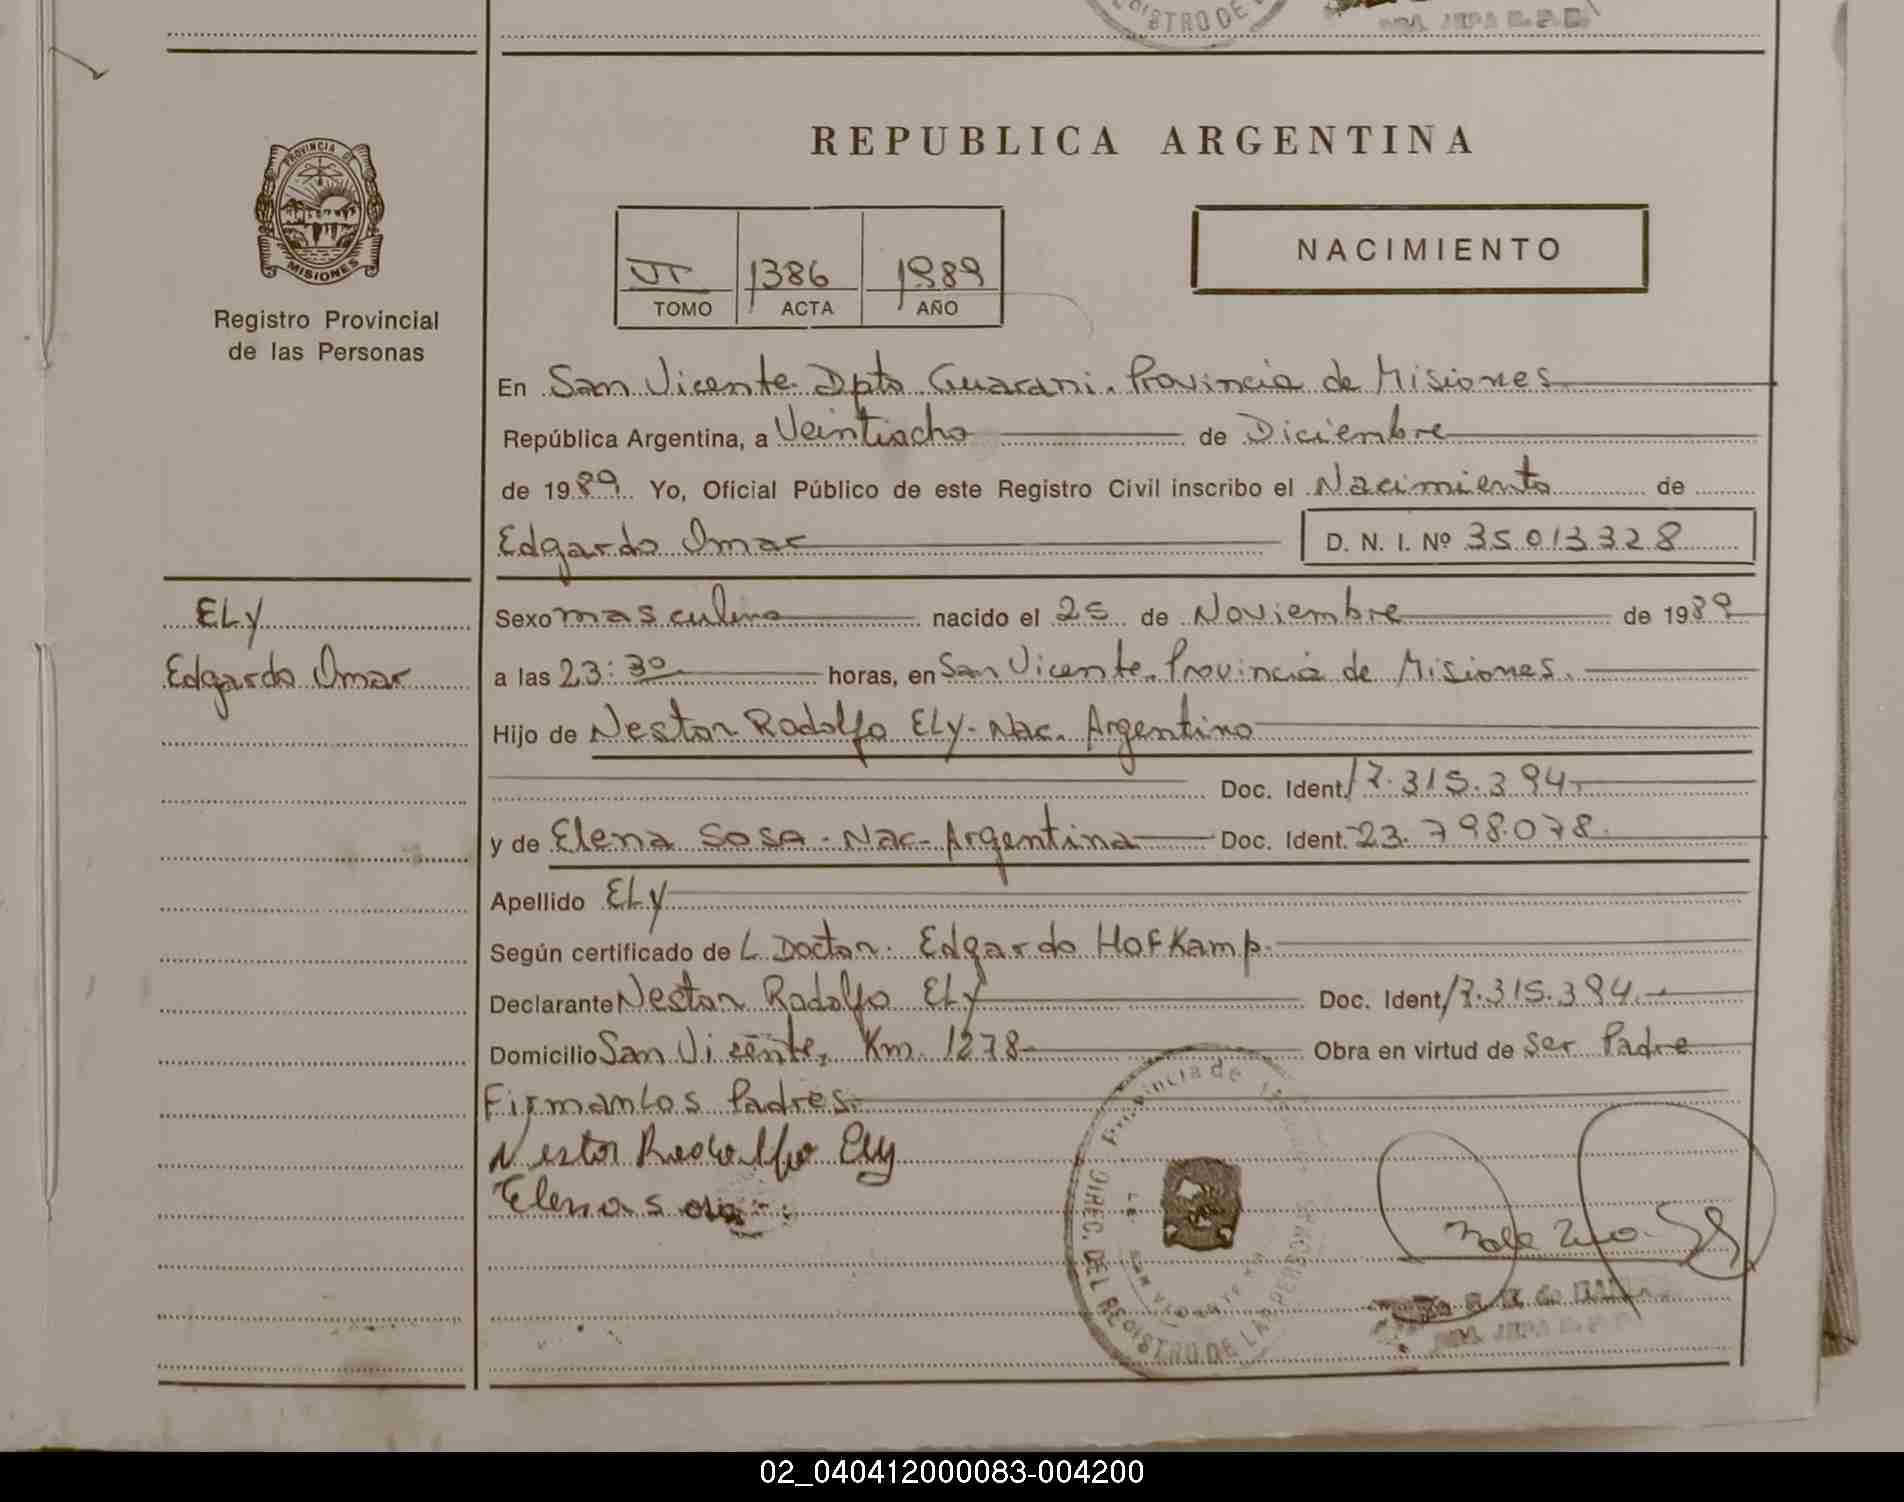 REPUBLICA ARGENTINA
PROVINCIA DE
MISIONES
Registro Provincial
de las Personas
VI 1386 1989
TOMO ACTA AÑO
NACIMIENTO
En San Vicente. Dpto Guarani. Provincia de Misiones
República Argentina, a Veintiocho de Diciembre
de 1989. Yo, Oficial Público de este Registro Civil inscribo el Nacimiento de
Edgardo Omar D. N. I. Nº 35013328
ELy
Edgardo Omar
Sexo masculino nacido el 25 de Noviembre de 1989
a las 23:30 horas, en San Vicente. Provincia de Misiones.
Hijo de Nestor Rodolfo ELy- Nac. Argentino
Doc. Ident. 17.315.394
y de Elena SOSA - Nac- Argentina Doc. Ident. 23.798.078.
Apellido ELy
Según certificado de L Doctor. Edgardo HofKamp.
Declarante Nestor Rodolfo ELy Doc. Ident. 17.315.394.
Domicilio San Vicente, Km 1278 Obra en virtud de Ser Padre
Firman Los Padres.
Nestor Rodolfo Ely
Elena Sosa
Provincia de
DIREC. DEL REGISTRO DE LAS PERSONAS
SAN VICENTE
02_040412000083-004200